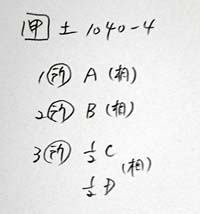 甲 土 1040-4
1 所 A (相)
2 所 B (相)
3 所 1/2 C
(相)
1/2 D